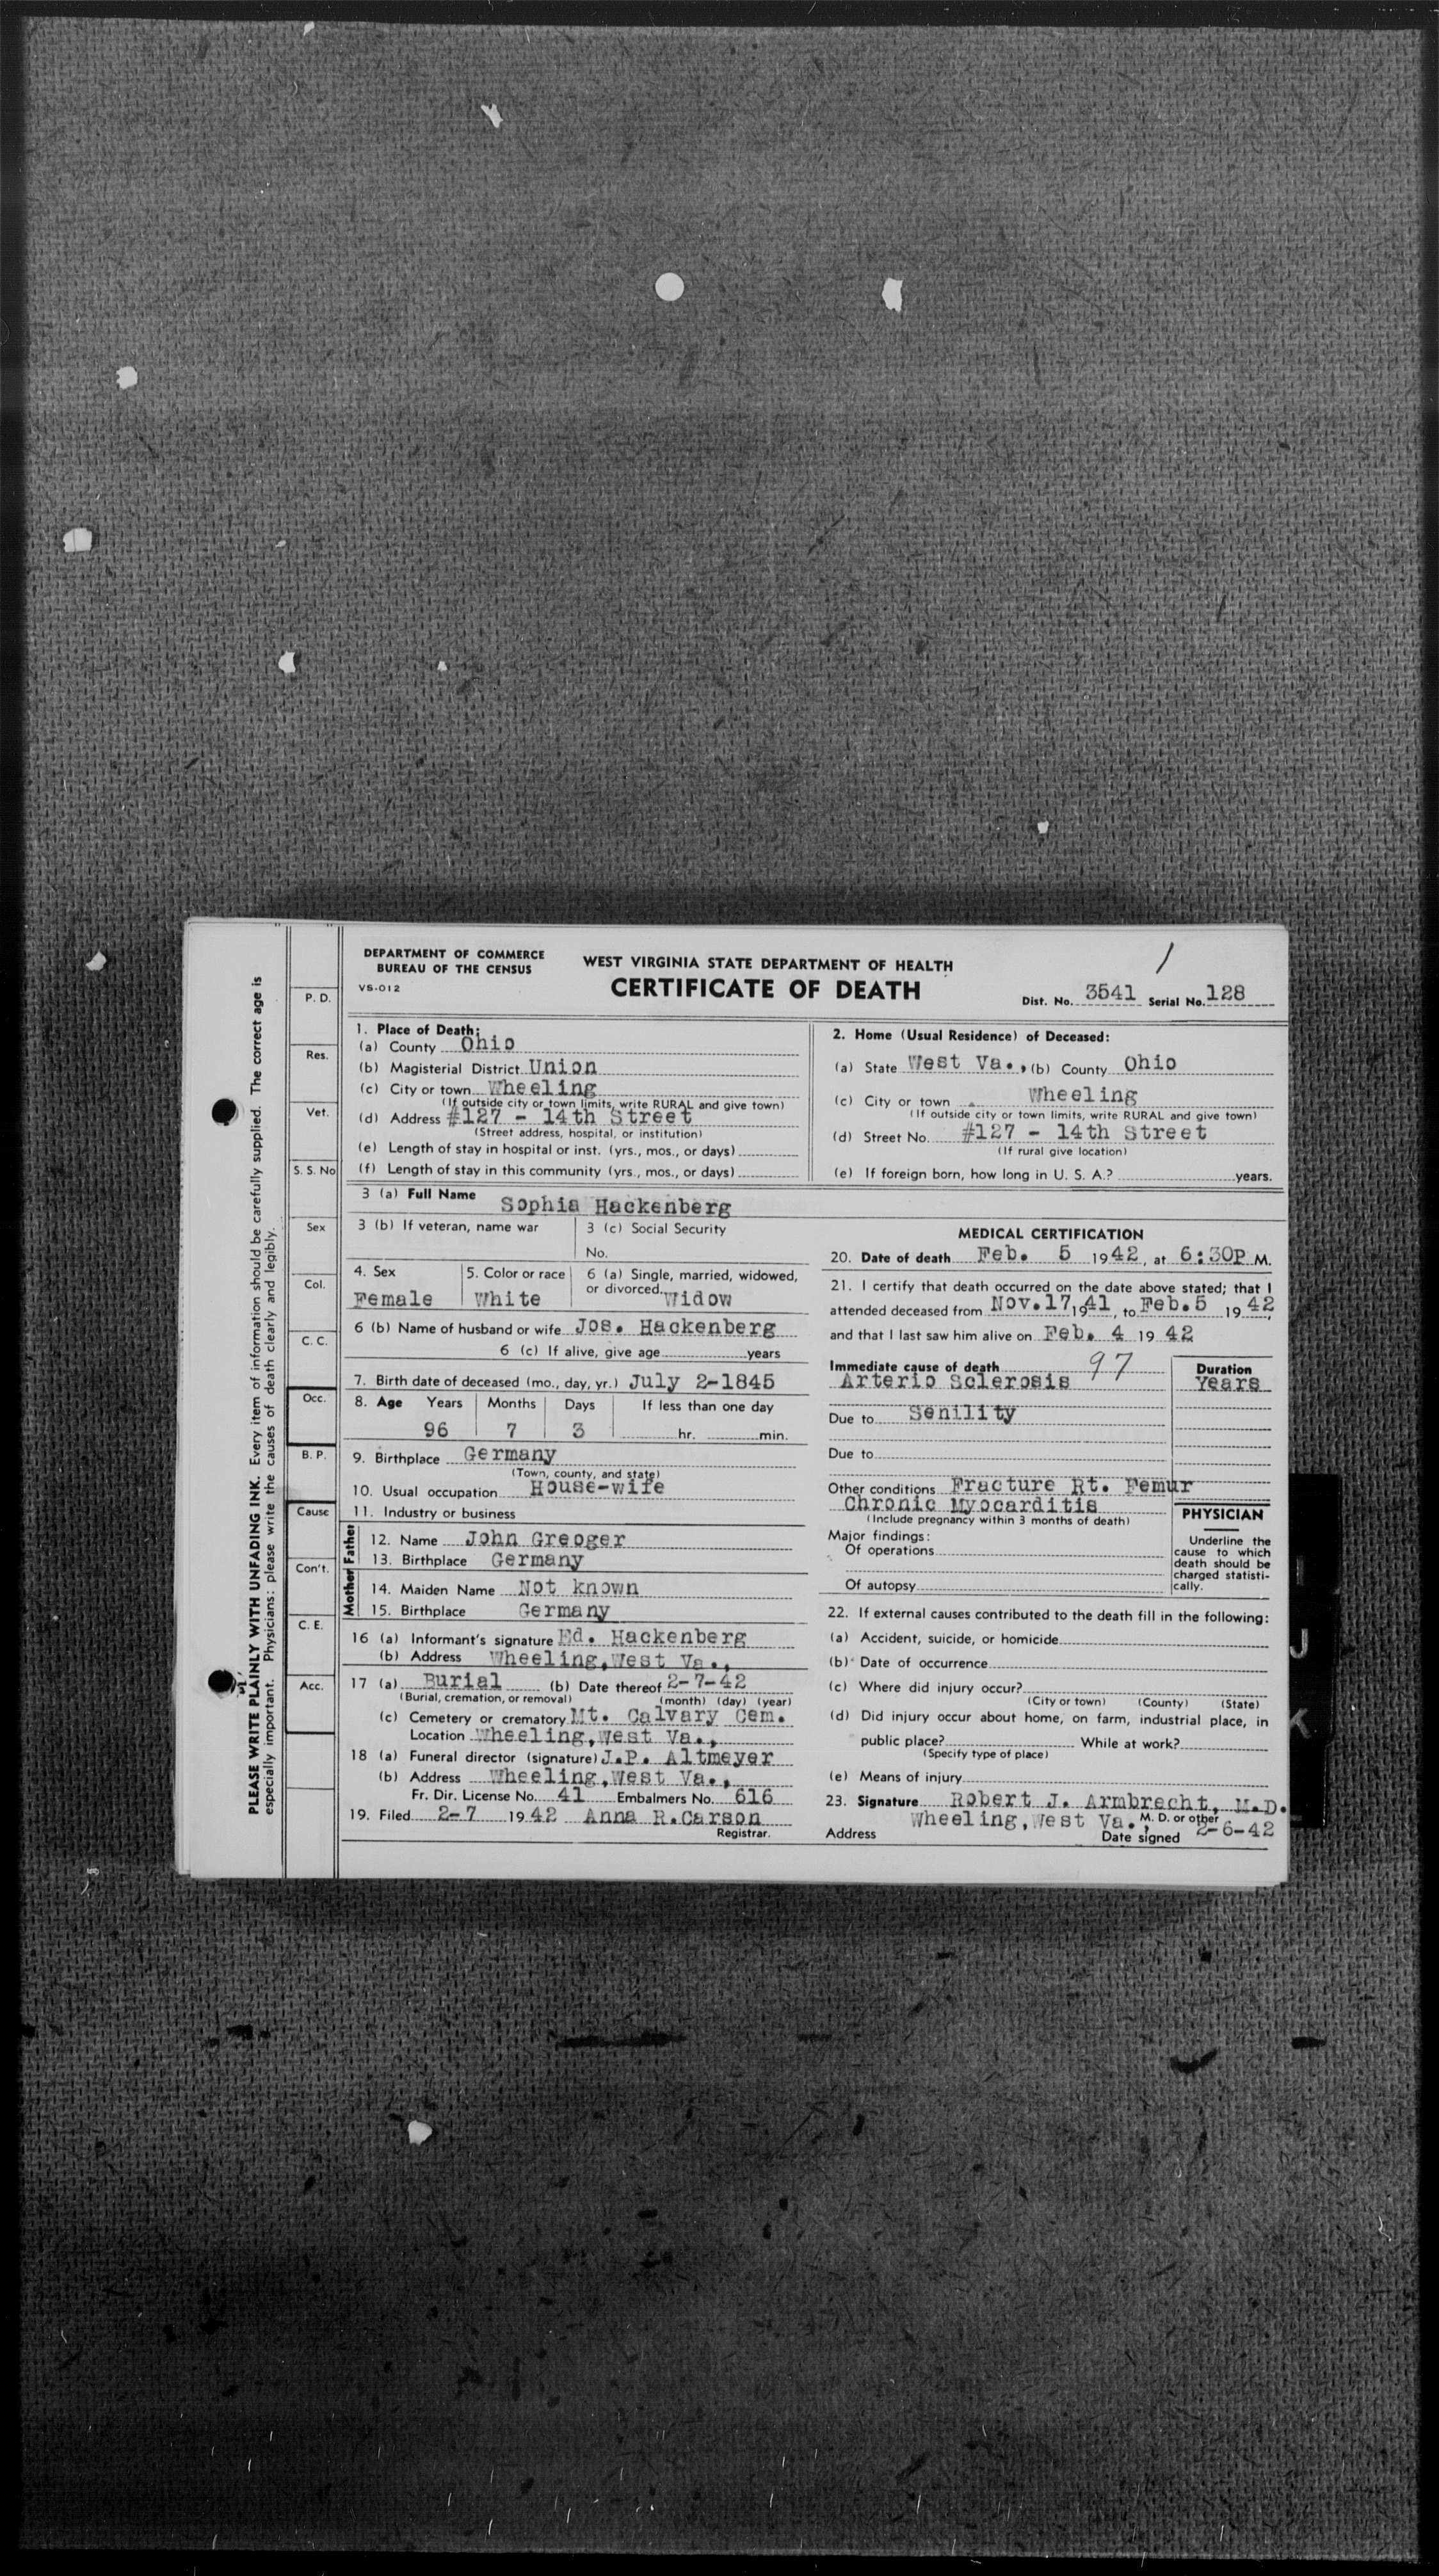 PLEASE WRITE PLAINLY WITH UNFADING INK. Every item of information should be carefully supplied. The correct age is
especially important. Physicians: please write the causes of death clearly and legibly.
P. D.
Res.
Vet.
S. S. No
Sex
Col.
C. C.
Occ.
B. P.
Cause
Con't.
C. E.
Acc.
DEPARTMENT OF COMMERCE
BUREAU OF THE CENSUS
VS-012
WEST VIRGINIA STATE DEPARTMENT OF HEALTH
CERTIFICATE OF DEATH
Dist. No. 3541 Serial No. 128
1. Place of Death:
(a) County Ohio
(b) Magisterial District Union
(c) City or town Wheeling
(If outside city or town limits, write RURAL and give town)
(d) Address #127 - 14th Street
(Street address, hospital, or institution)
(e) Length of stay in hospital or inst. (yrs., mos., or days)
(f) Length of stay in this community (yrs., mos., or days)
2. Home (Usual Residence) of Deceased:
(a) State West Va., (b) County Ohio
(c) City or town Wheeling
(If outside city or town limits, write RURAL and give town)
(d) Street No. #127 - 14th Street
(If rural give location)
(e) If foreign born, how long in U. S. A.? years.
3 (a) Full Name Sophia Hackenberg
3 (b) If veteran, name war
3 (c) Social Security
No.
4. Sex
Female
5. Color or race
White
6 (a) Single, married, widowed,
or divorced. Widow
6 (b) Name of husband or wife Jos. Hackenberg
6 (c) If alive, give age years
7. Birth date of deceased (mo., day, yr.) July 2-1845
8. Age Years Months Days If less than one day
96 7 3 hr. min.
9. Birthplace Germany
(Town, county, and state)
10. Usual occupation House-wife
11. Industry or business
Father
12. Name John Greoger
13. Birthplace Germany
Mother
14. Maiden Name Not known
15. Birthplace Germany
16 (a) Informant's signature Ed. Hackenberg
(b) Address Wheeling,West Va.,
17 (a) Burial (b) Date thereof 2-7-42
(Burial, cremation, or removal) (month) (day) (year)
(c) Cemetery or crematory Mt. Calvary Cem.
Location Wheeling,West Va.,
18 (a) Funeral director (signature) J.P. Altmeyer
(b) Address Wheeling,West Va.,
Fr. Dir. License No. 41 Embalmers No. 616
19. Filed 2-7 1942 Anna R.Carson
Registrar.
MEDICAL CERTIFICATION
20. Date of death Feb. 5 1942, at 6:30P M.
21. I certify that death occurred on the date above stated; that I
attended deceased from Nov.17,1941, to Feb.5 1942,
and that I last saw him alive on Feb. 4 1942
Immediate cause of death 97
Arterio Sclerosis
Duration
Years
Due to Senility
Due to
Other conditions Fracture Rt. Femur
Chronic Myocarditis
(Include pregnancy within 3 months of death)
Major findings:
Of operations
Of autopsy
PHYSICIAN
Underline the
cause to which
death should be
charged statisti-
cally.
22. If external causes contributed to the death fill in the following:
(a) Accident, suicide, or homicide
(b) Date of occurrence
(c) Where did injury occur?
(City or town) (County) (State)
(d) Did injury occur about home, on farm, industrial place, in
public place? While at work?
(Specify type of place)
(e) Means of injury
23. Signature Robert J. Armbrecht, M.D.
M. D. or other
Address Wheeling,West Va., Date signed 2-6-42
J
K